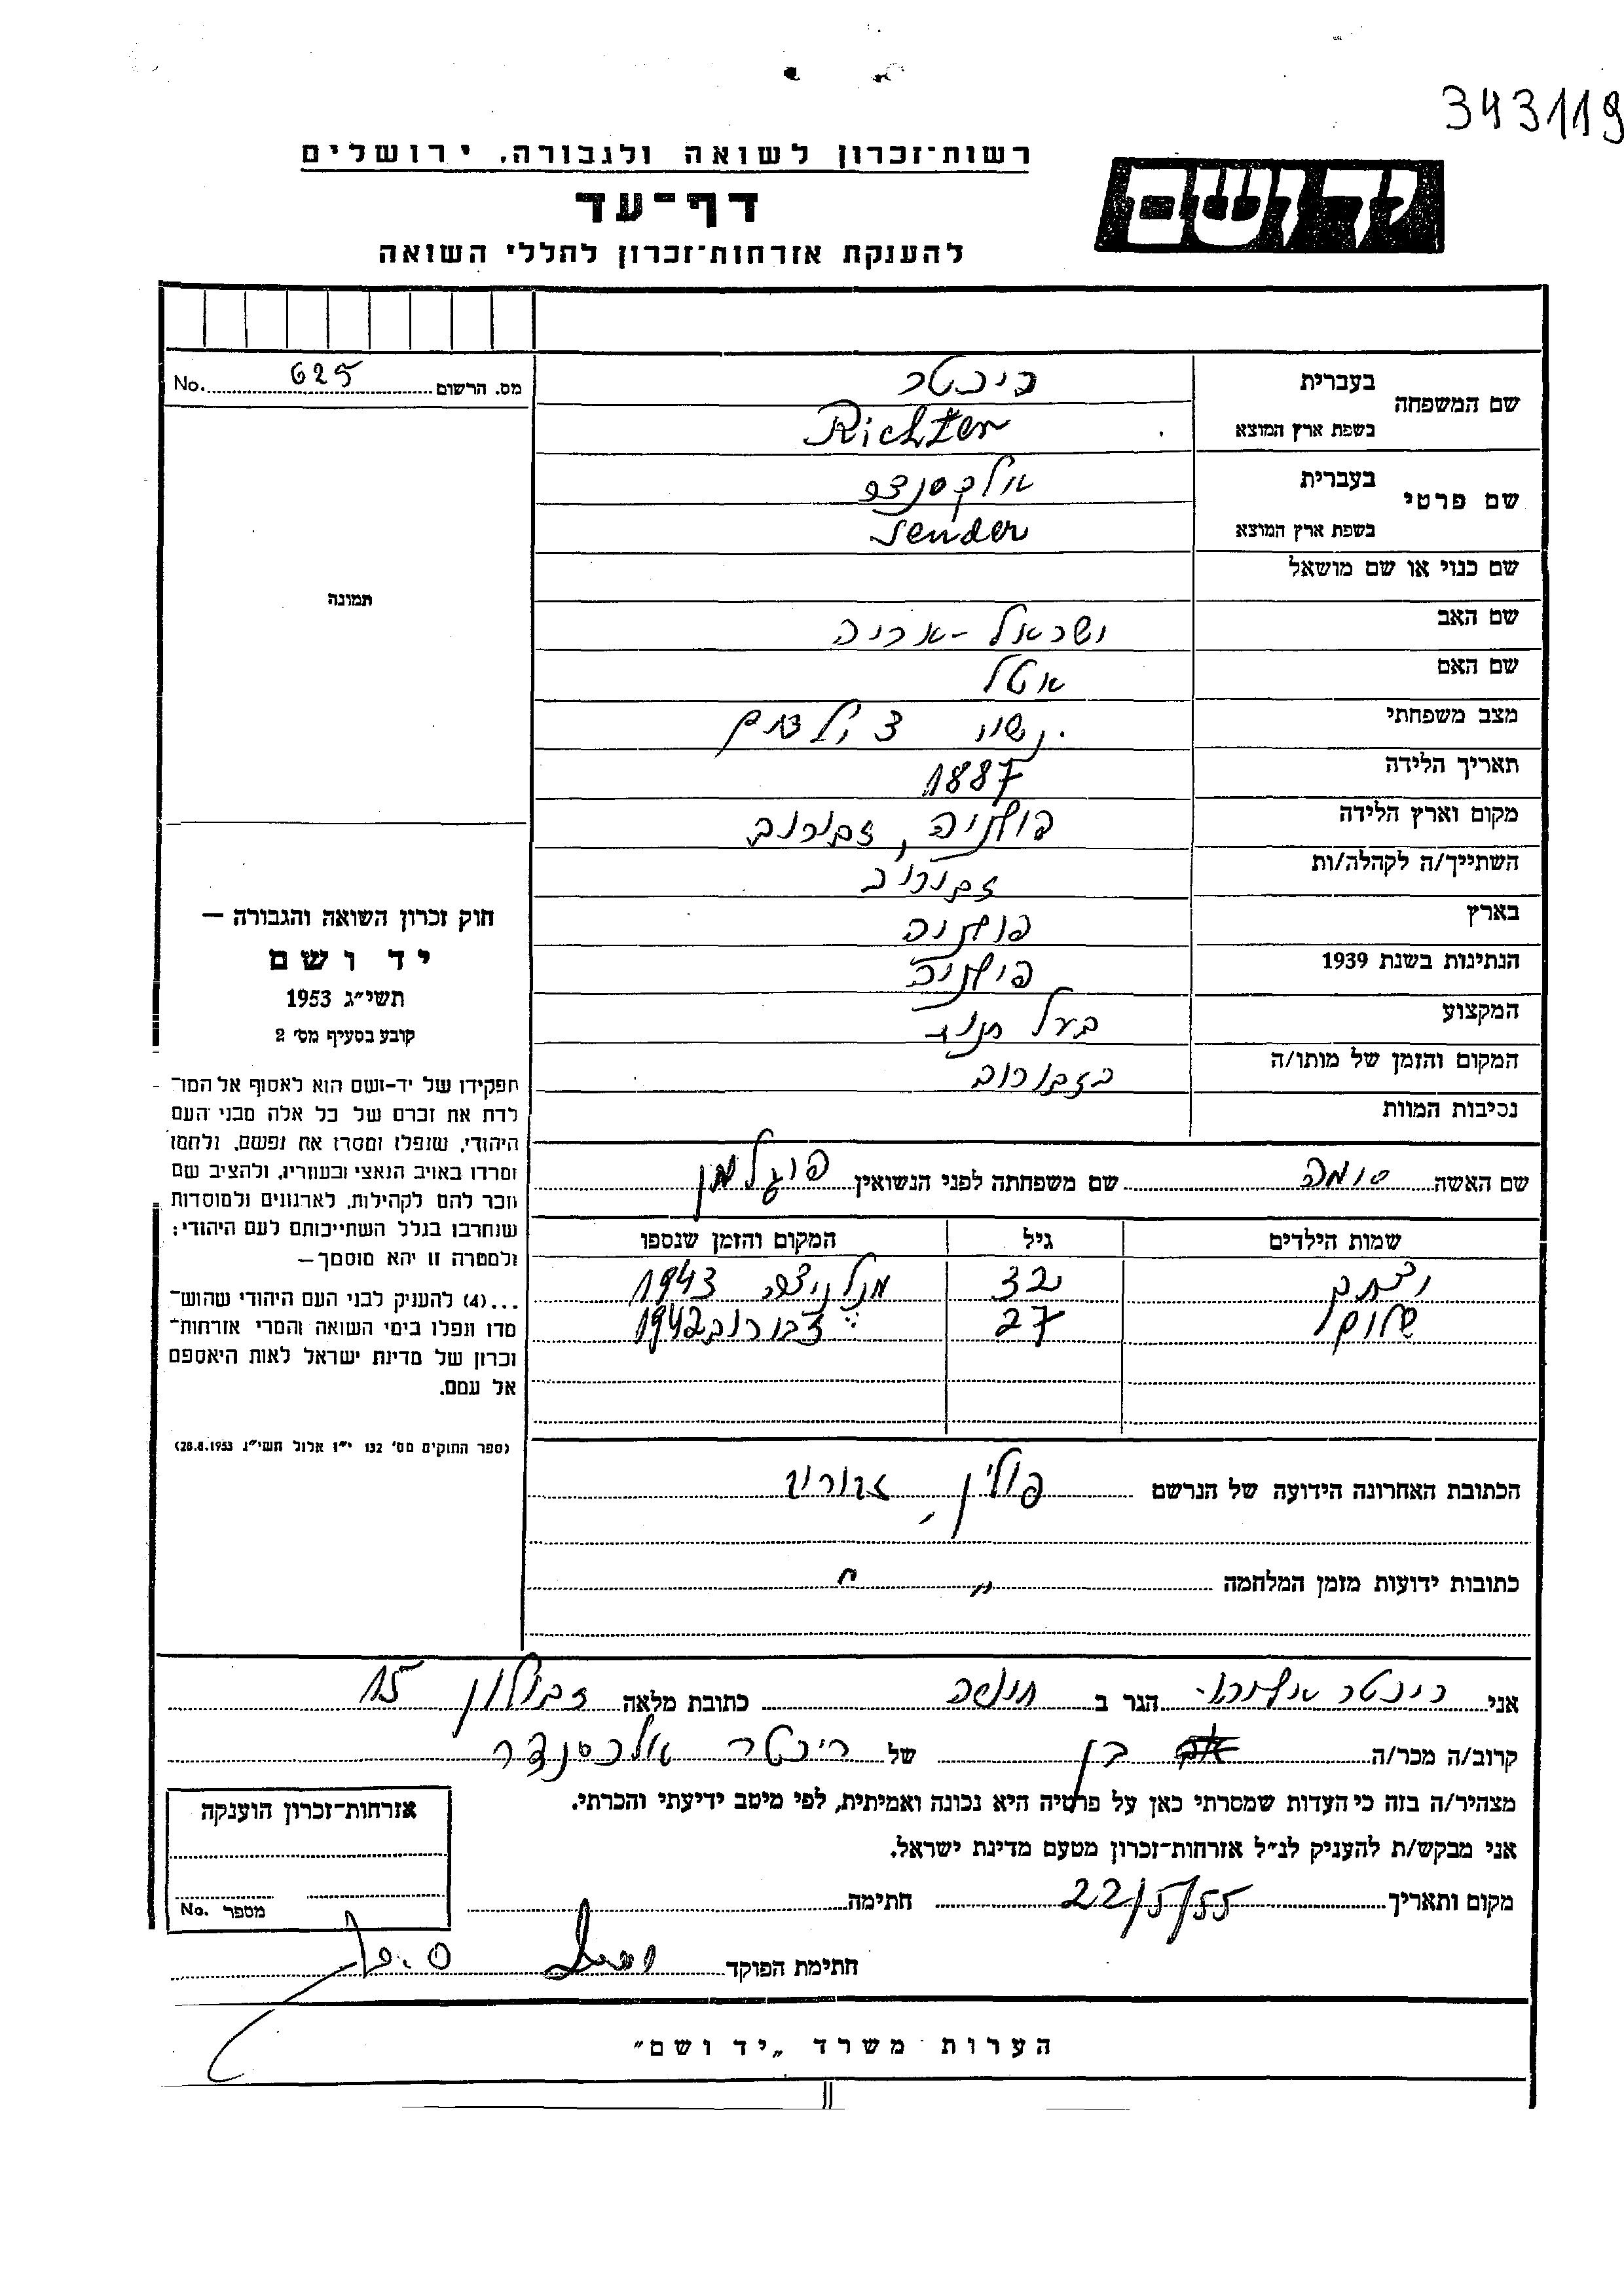 343119
רשות־זכרון לשואה ולגבורה, ירושלים
יד ושם
דף־עד
להענקת אזרחות־זכרון לחללי השואה
מס. הרשום 625 No.
שם המשפחה
בעברית ריכטר
בשפת ארץ המוצא Richter
שם פרטי
בעברית אלכסנדר
בשפת ארץ המוצא Sender
שם כנוי או שם מושאל
שם האב ישראל-אריה
שם האם אטל
מצב משפחתי נשוי 3 ילדים
תאריך הלידה 1887
מקום וארץ הלידה פולניה, זבורוב
השתייך/ה לקהלה/ות זבורוב
בארץ פולניה
הנתינות בשנת 1939 פולניה
המקצוע בעל חנות
המקום והזמן של מותו/ה בזבורוב
נסיבות המוות
שם האשה שם משפחתה לפני הנשואין פוגלמן
שמות הילדים גיל המקום והזמן שנספו
32 1943
שלום 27 זבורוב 1942
הכתובת האחרונה הידועה של הנרשם פולין,
כתובות ידועות מזמן המלחמה " "
תמונה
חוק זכרון השואה והגבורה —
יד ושם
תשי״ג 1953
קובע בסעיף מס׳ 2
תפקידו של יד-ושם הוא לאסוף אל המו־
לדת את זכרם של כל אלה מבני העם
היהודי, שנפלו ומסרו את נפשם, נלחמו
ומרדו באויב הנאצי ובעוזריו, ולהציב שם
וזכר להם לקהילות, לארגונים ולמוסדות
שנחרבו בגלל השתייכותם לעם היהודי;
ולמטרה זו יהא מוסמך—
...(4) להעניק לבני העם היהודי שהוש־
מדו ונפלו בימי השואה והמרי אזרחות־
זכרון של מדינת ישראל לאות היאספם
אל עמם.
(ספר החוקים מס׳ 132 י״ז אלול תשי״ג 28.8.1953)
אני ריכטר הגר ב חיפה כתובת מלאה זבולון 15
קרוב/ה מכר/ה בן של ריכטר אלכסנדר
מצהיר/ה בזה כי העדות שמסרתי כאן על פרטיה היא נכונה ואמיתית, לפי מיטב ידיעתי והכרתי.
אני מבקש/ת להעניק לנ״ל אזרחות־זכרון מטעם מדינת ישראל.
מקום ותאריך 22/5/55 חתימה
חתימת הפוקד
אזרחות־זכרון הוענקה
מספר No.
הערות משרד „יד ושם"